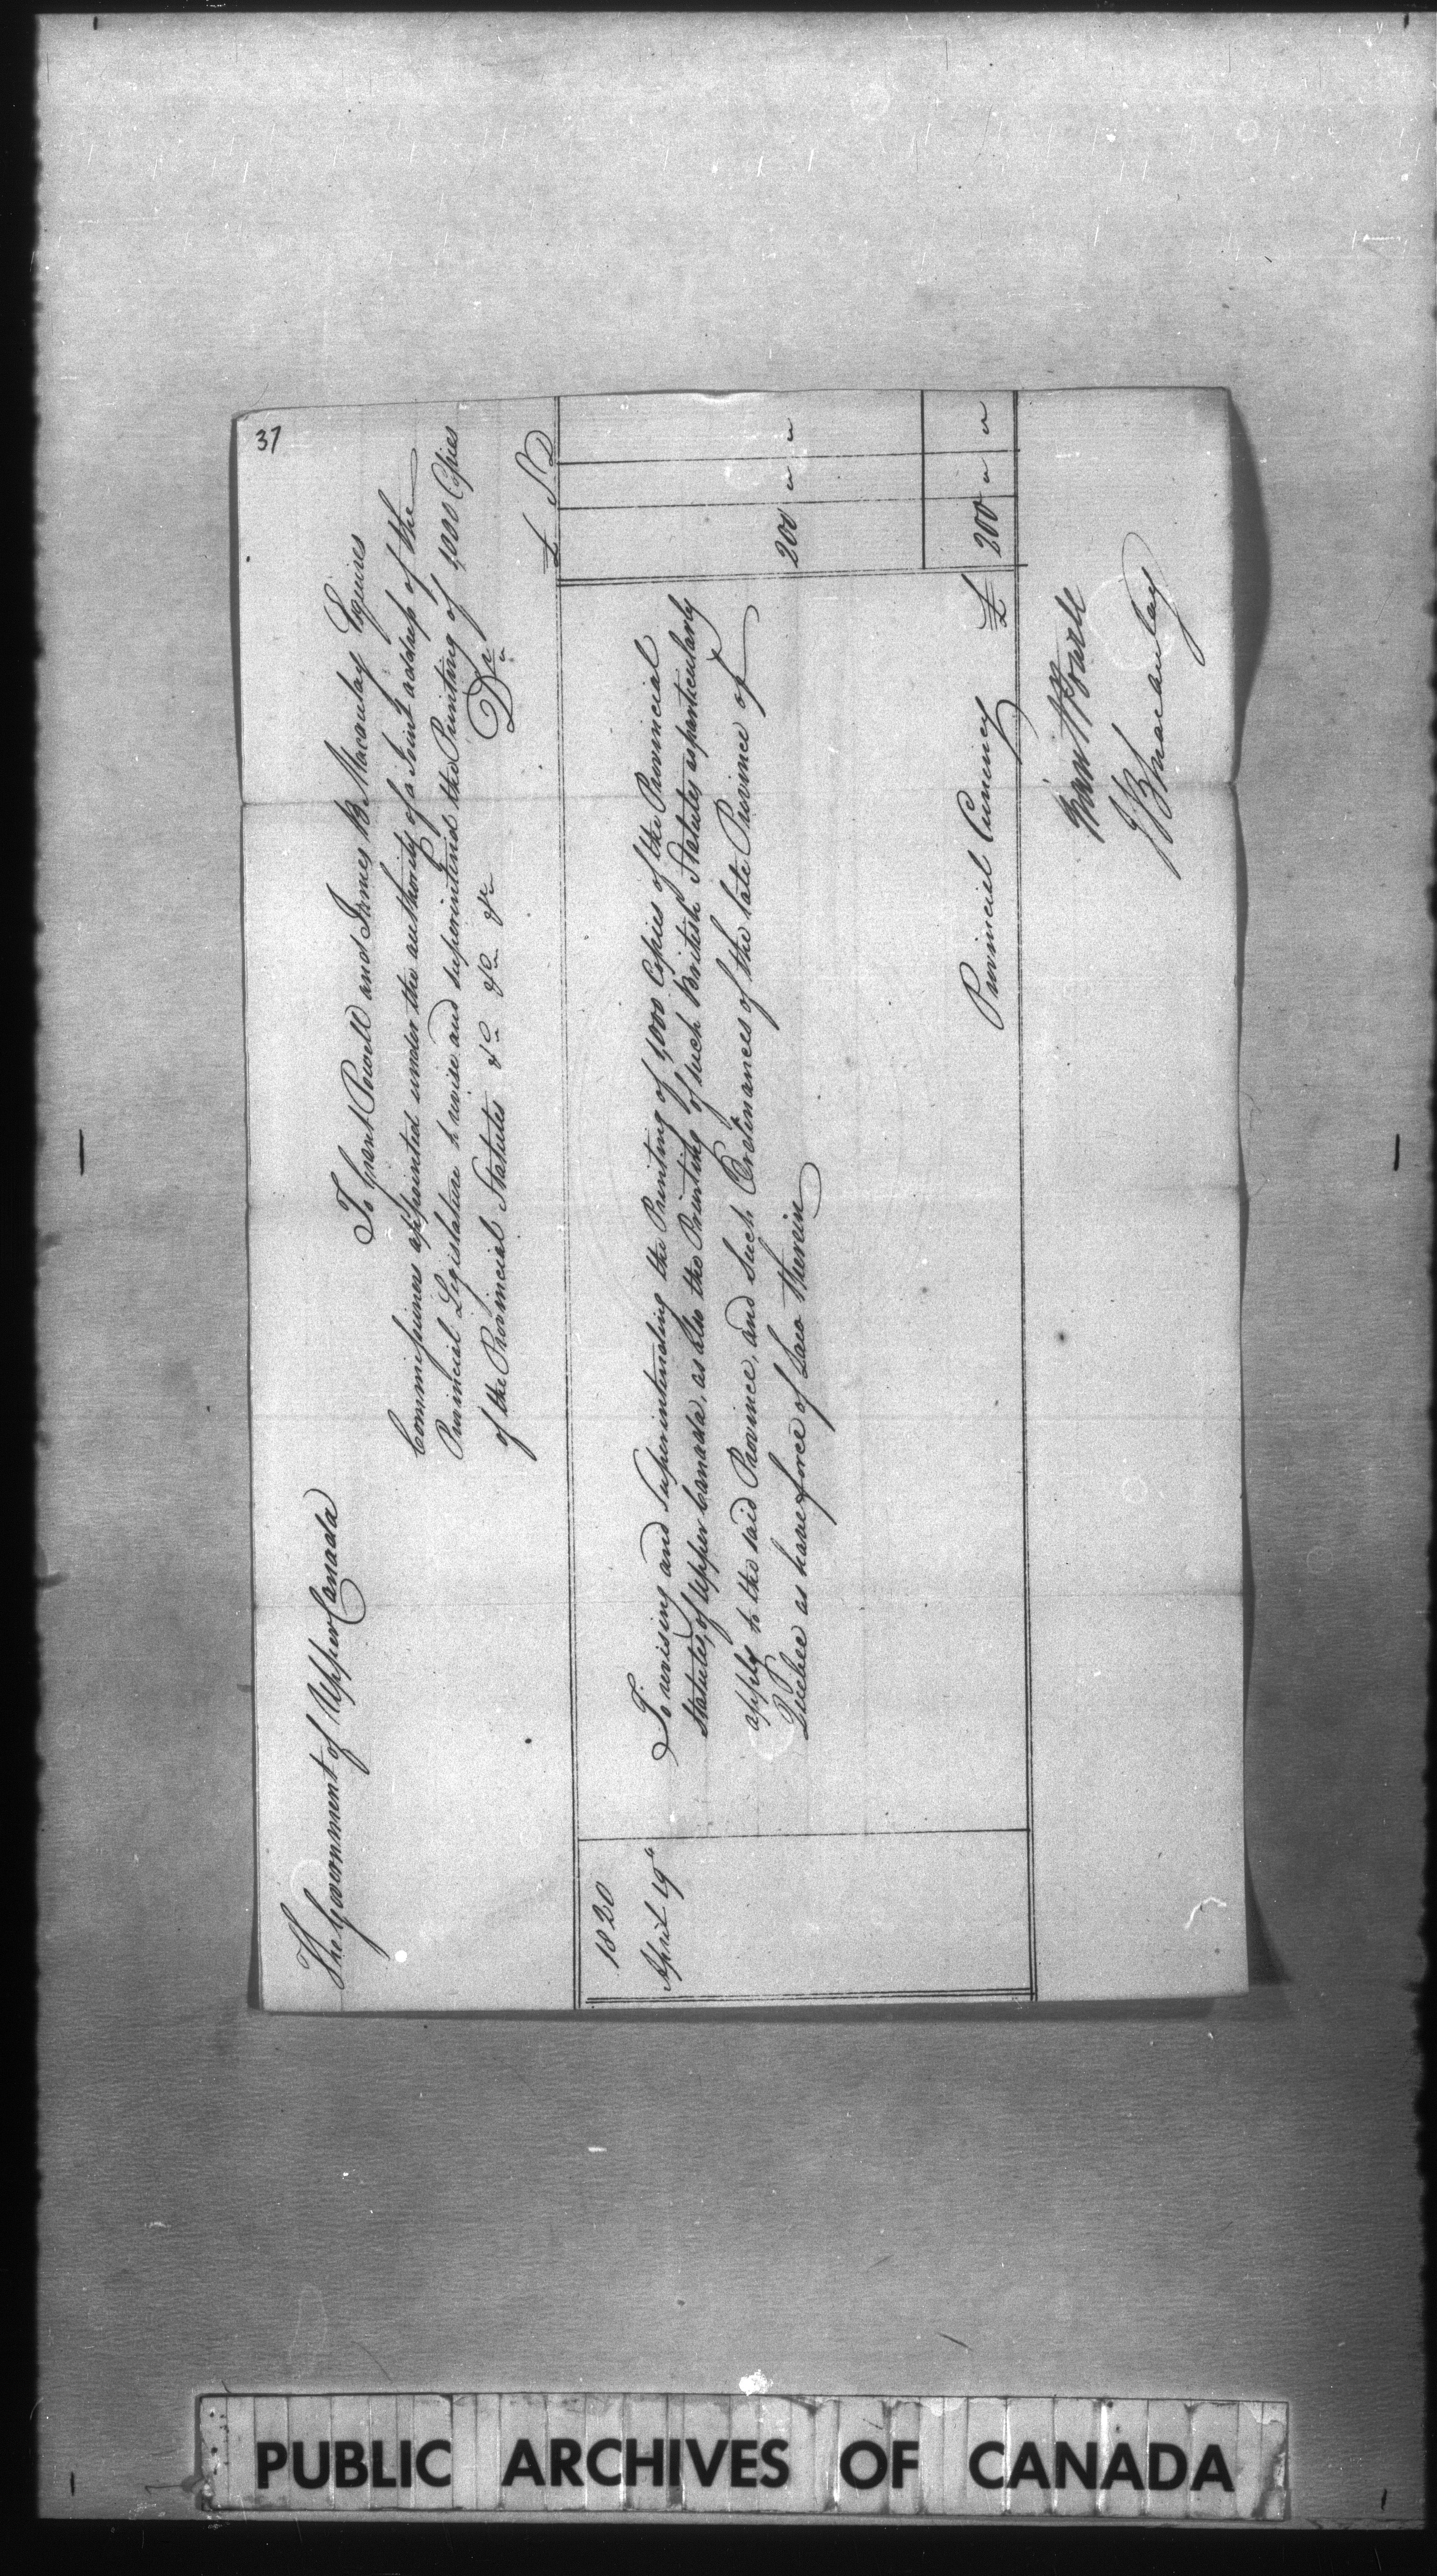 37
The Government of Upper Canada
To Grant Powell and James B. Macaulay Esquires
Commissioners appointed under the authority of a Joint address of the
Provincial Legislature to revise and superintend the Printing of 1,000 Copies
of the Provincial Statutes &c &c &c Dr
£ S D
1820
April 19th To revising and Superintending the Printing of 1,000 Copies of the Provincial
Statutes, of Upper Canada, as also the Printing of such British Statutes as particularly
apply to the said Province, and such Ordinances of the late Province of
Quebec as have force of Law therein 200 " "
Provincial Currency £ 200 " "
Grant Powell
J B Macaulay
PUBLIC ARCHIVES OF CANADA